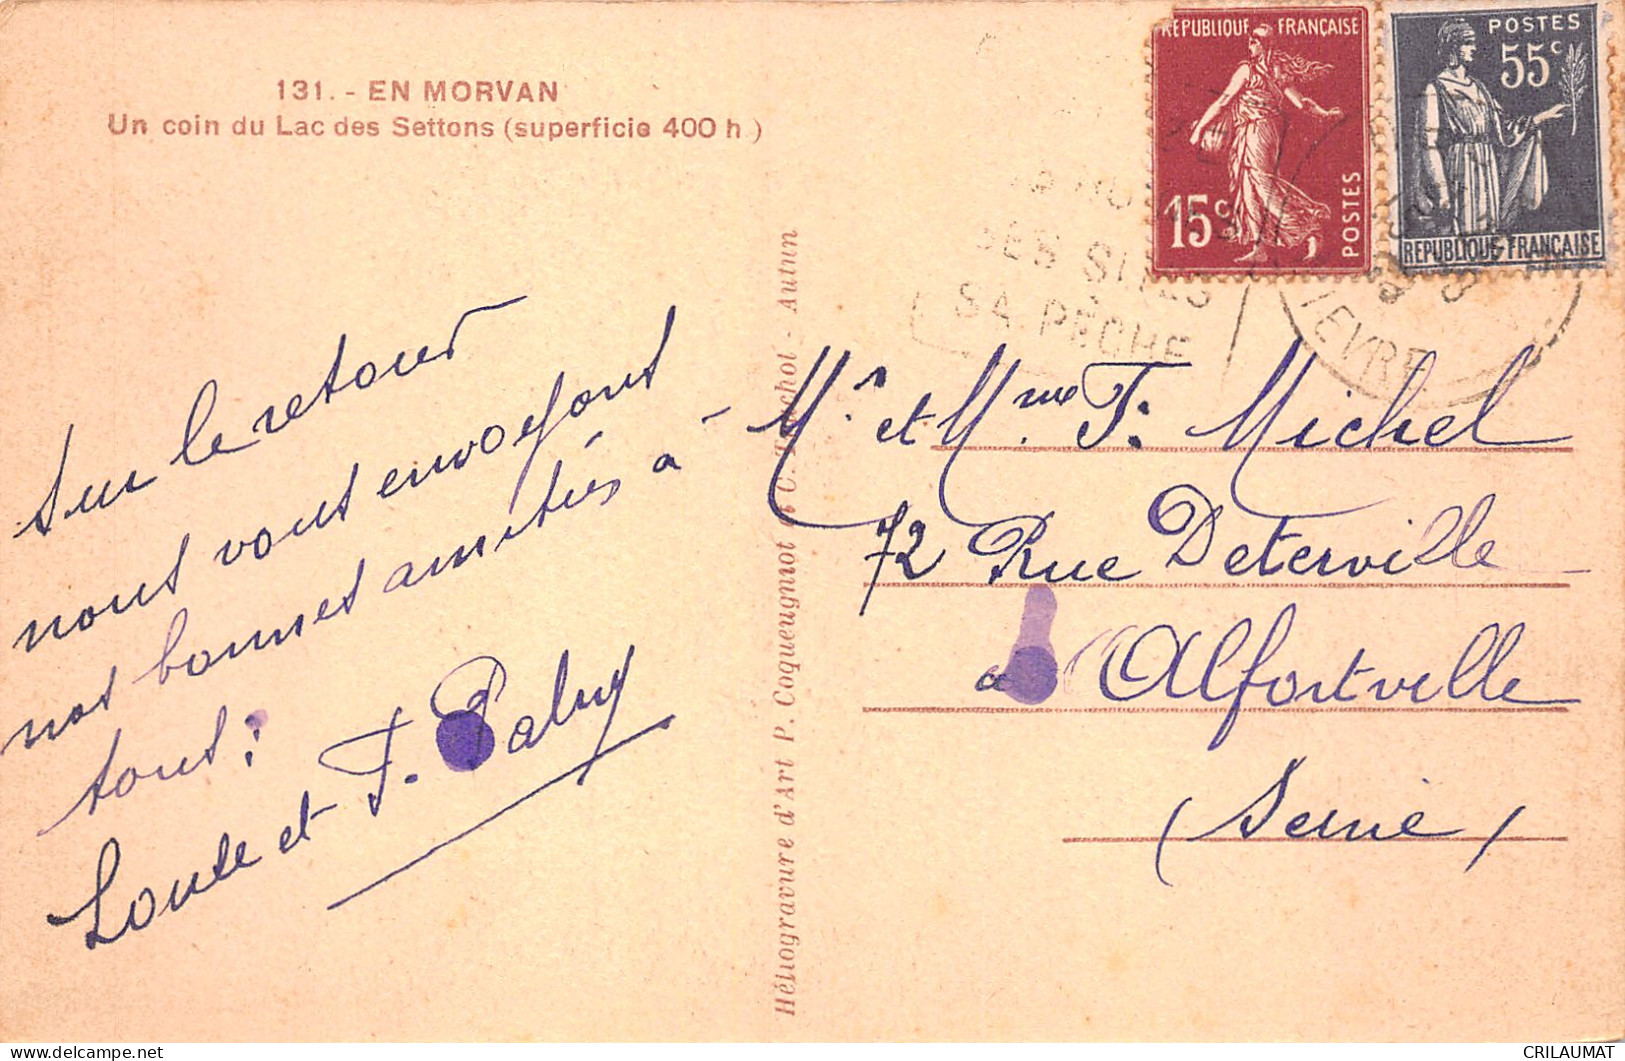 131. - EN MORVAN
Un coin du Lac des Settons (superficie 400 h.)
RÉPUBLIQUE FRANÇAISE
15c
POSTES
POSTES
55c
RÉPUBLIQUE FRANÇAISE
SES SITES
SA PÊCHE
Sur le retour
nous vous envoyons
nos bonnes amitiés à
tous:
et F.
Mr et Mme F. Michel
72 Rue Deterville
à Alfortville
(Seine)
Héliogravure d'Art P. Coqueugniot et C. - Autun
CRILAUMAT